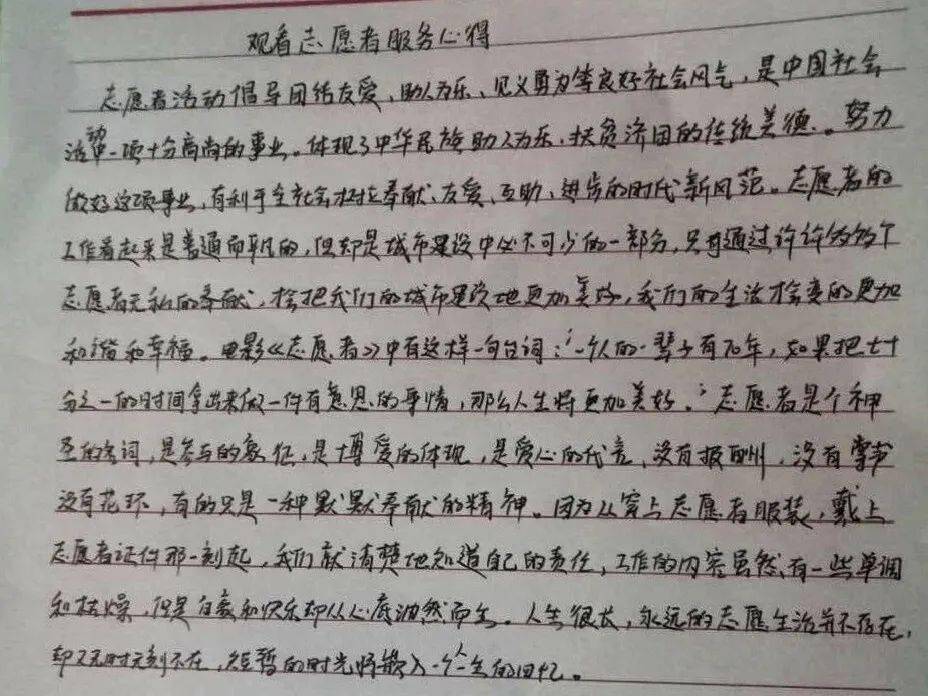 观看志愿者服务心得
志愿者活动倡导团结友爱、助人为乐、见义勇为等良好社会风气，是中国社会
活动中一项十分高尚的事业。体现了中华民族助人为乐，扶贫济困的传统美德。努力
做好这项事业，有利于全社会树立奉献、友爱、互助、进步的时代新风范。志愿者的
工作看起来是普通而平凡的，但却是城市建设中必不可少的一部分，只有通过许许多多个
志愿者无私的奉献，才会把我们的城市建设地更加美好，我们的生活才会变的更加
和谐和幸福。电影《志愿者》中有这样一句台词：“一个人的一辈子有70年，如果把七十
分之一的时间拿出来做一件有意思的事情，那么人生将更加美好。”志愿者是个神
圣的名词，是参与的象征，是博爱的体现，是爱心的代言，没有报酬，没有掌声
没有花环，有的只是一种默默奉献的精神。因为从穿上志愿者服装，戴上
志愿者证件那一刻起，我们就清楚地知道自己的责任，工作的内容虽然有一些单调
和枯燥，但是自豪和快乐却从心底油然而生。人生很长，永远的志愿生活并不存在，
却又无时无刻不在，短暂的时光将嵌入一个人一生的回忆。